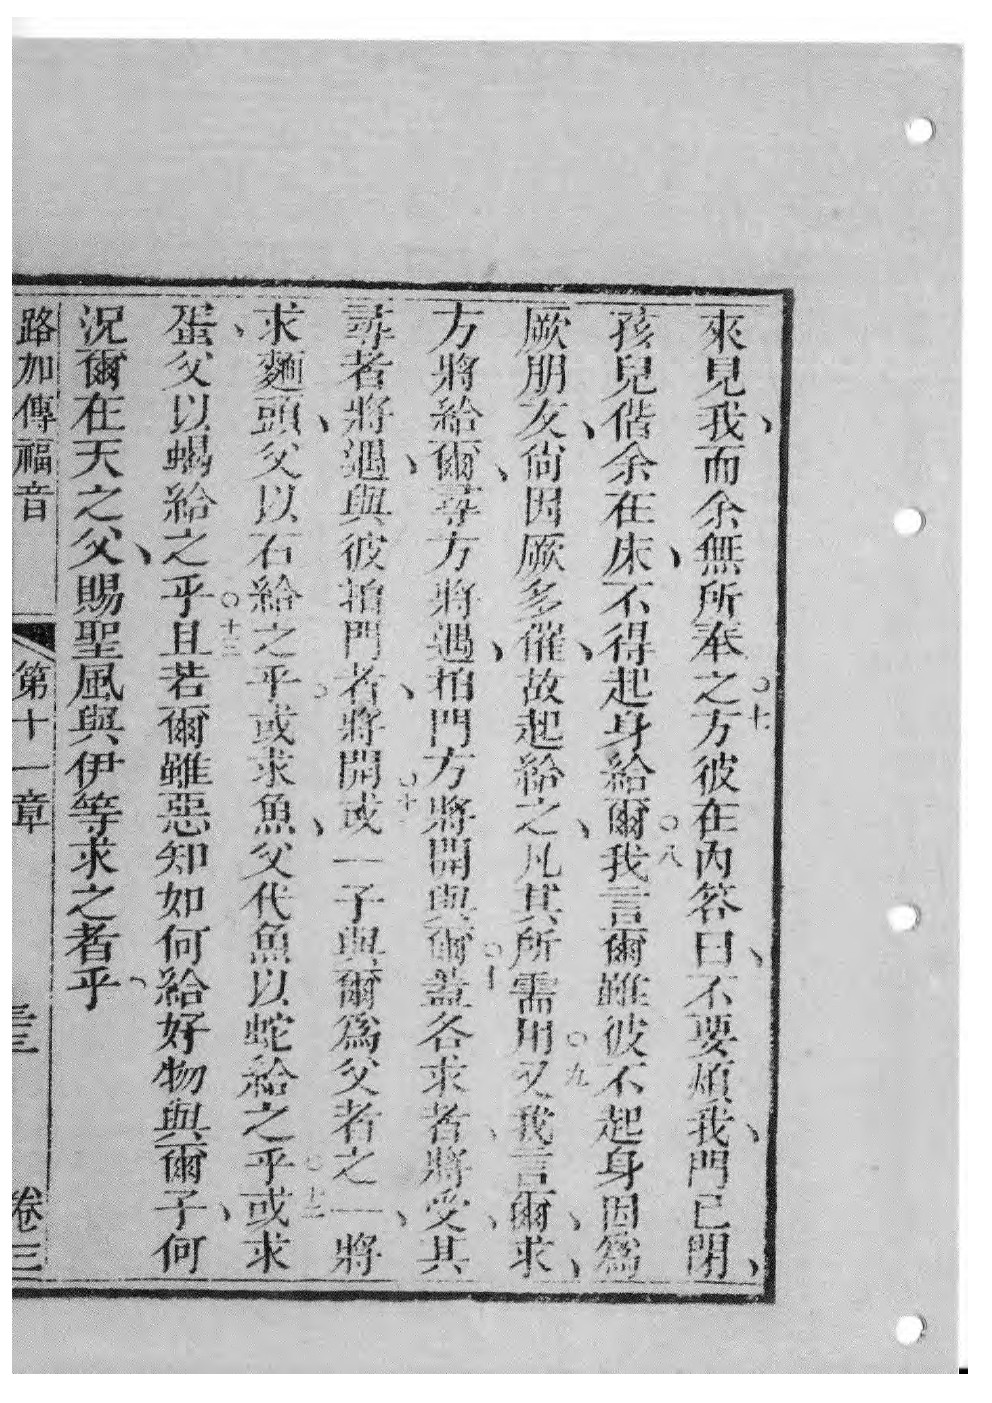 來見我、而余無所奉之○七方彼在內答曰、不要煩我、門已閉、
孩兒偕余在床、不得起身給爾○八我言爾雖彼不起身因爲
厥朋友、尙因厥多催、故起給之、凡其所需用○九又我言爾、求、
方將給爾、尋方將遇、拍門方將開與爾○十蓋各求者、將受、其
尋者將遇、與彼拍門者、將開○十一或一子與爾爲父者之一、將
求麵頭、父以石給之乎、或求魚、父代魚以蛇給之乎○十二或求
蛋、父以蝎給之乎○十三且若爾雖惡知如何給好物與爾子、何
況爾在天之父、賜聖風與伊等求之者乎、
路加傳福音 第十一章 卷三